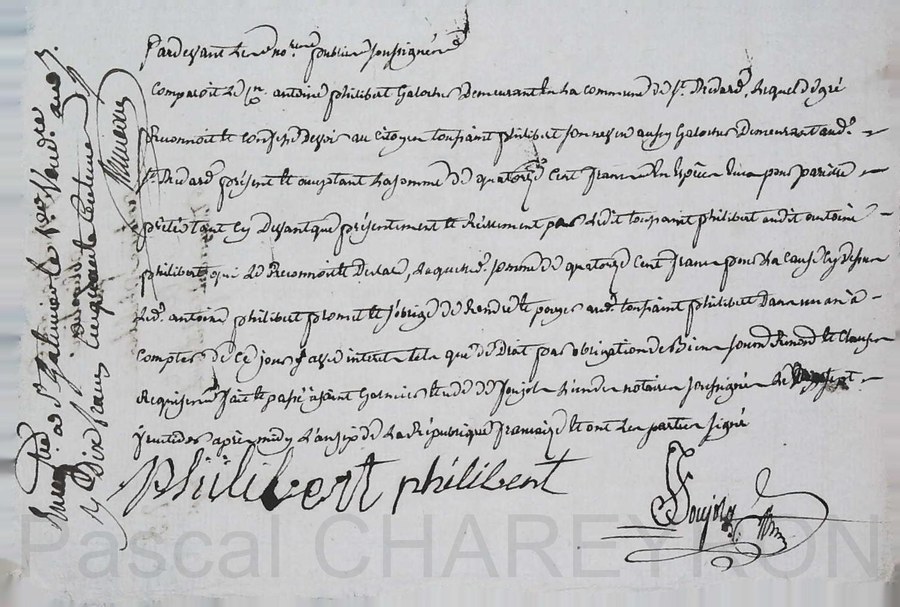 Pardevant le no.re public soussigné
Comparoit le c.en antoine philibert Galocher Demeurant en la commune de S.t Médard, lequel de gré
Reconnoit et confesse devoir au citoyen toussaint philibert son neveu aussy Galocher Demeurant aud.
S.t Médard présent et acceptant la somme de quatorze Cent francs En Espèces
prêté tant cy Devant que présentement et Réellement par ledit toussaint philibert audit antoine
philibert qui le Reconnoit et Declare, laquelle d. somme de quatorze Cent francs pour la cause cy dessus
led. antoine philibert promet et s'oblige de Rendre et payer aud. toussaint philibert Dans un an à
Compter de Ce jour avec interet tels que de Droit par obligation de Biens soumis Renond et Clauses
Requises fait et passé à Saint Galmier Etude de Soujol l'un des notaires soussigné le
après midy L'an six de la République francaise et ont les parties signé
philibert philibert
Soujol
Enreg.tré a S.t Galmier le
Dix francs Cinquante Centimes
Pascal CHAREYRON